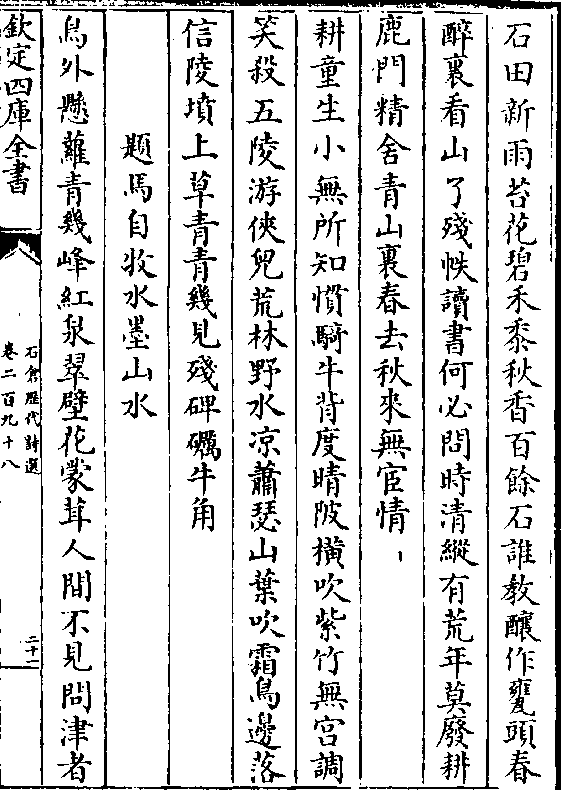 石田新雨苔花碧禾黍秋香百餘石誰教釀作甕頭春
醉裏看山了殘帙讀書何必問時清縱有荒年莫廢耕
鹿門精舍青山裏春去秋來無宦情
耕童生小無所知慣騎牛背度晴陂橫吹紫竹無宮調
笑殺五陵游俠兒荒林野水凉蕭瑟山葉吹霜鳥邊落
信陵墳上草青青幾見殘碑礪牛角
題馬自牧水墨山水
鳥外懸蘿青幾峰紅泉翠壁花蒙茸人間不見問津者
欽定四庫全書
石倉歷代詩選
卷二百九十八
二十一